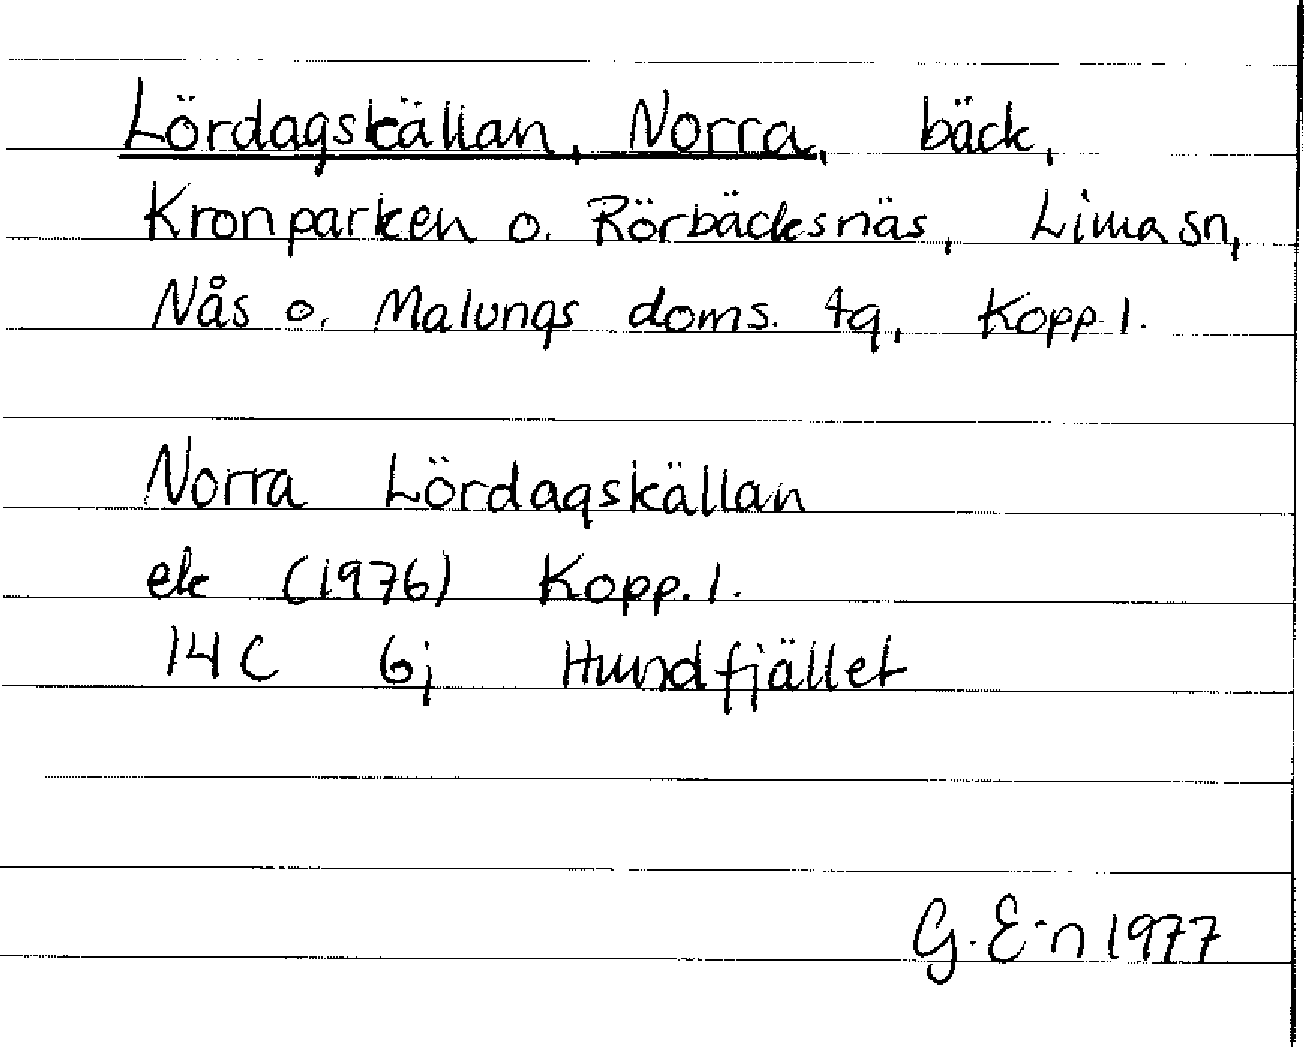 Lördagskällan, Norra, bäck,
Kronparken o. Rörbäcksnäs, Lima sn,
Nås o. Malungs doms. tg, Kopp. l.
Norra Lördagskällan
ek (1976) Kopp. l.
14 C 6j Hundfjället
G. E-n 1977